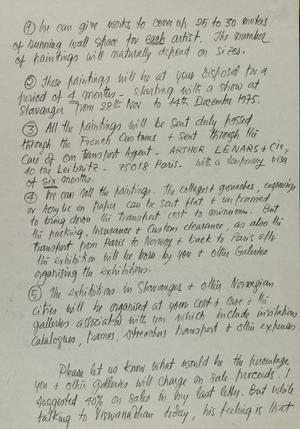 ① We can give works to cover up 25 to 30 meters
of running wall space for each artist. The number
of paintings will naturally depend on sizes.
② These paintings will be at your disposal for a
period of 4 months - starting with a show at
Stavanger from 28th Nov. to 14th December 1975.
③ All the paintings will be sent duly passed
through the French Customs + sent through the
Care of our transport Agent - ARTHUR LENARS + Cie,
10 rue Leibnitz - 75018 Paris. with a temporary visa
of six months.
④ We can roll the paintings. The collages + gouaches, engravings
or Acrylic on paper can be sent flat + unframed
to bring down the transport cost to minimum. But
the packing, Insurance + Custom clearance, as also the
transport from Paris to Norway + back to Paris after
the exhibition will be borne by you + other Galleries
organising the exhibitions.
⑤ The exhibitions in Stavanger + other Norwegian
cities will be organised at your cost + care + the
galleries associated with you which include invitations
Catalogues, frames, stretchers transport + other expenses.
Please let us know what would be the percentage
you + other Galleries will charge on sale proceeds. I
suggested 40% on sales in my last letter. But while
talking to Viswanadhan today, his feeling is that